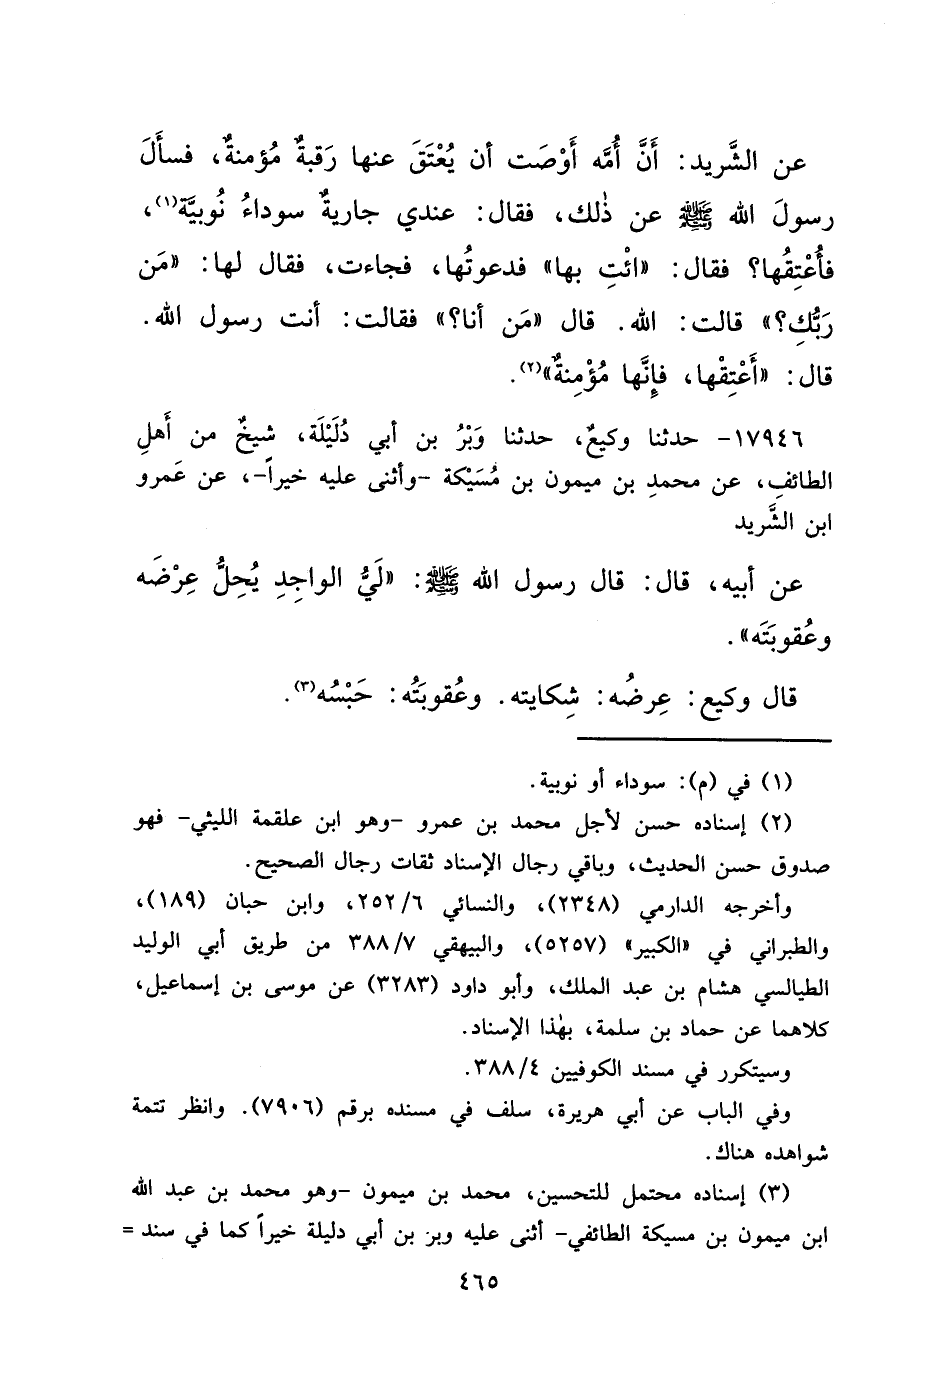 عن الشَّريد: أَنَّ أُمَّه أَوْصَت أن يُعْتَقَ عنها رَقبةٌ مُؤمنةٌ، فسأَلَ
رسولَ الله ﷺ عن ذٰلك، فقال: عندي جاريةٌ سوداءُ نُوبيَّة(١)،
فأُعْتِقُها؟ فقال: «ائْتِ بها» فدعوتُها، فجاءت، فقال لها: «مَن
رَبُّكِ؟» قالت: الله. قال «مَن أنا؟» فقالت: أنت رسول الله.
قال: «أَعْتِقْها، فإِنَّها مُؤْمِنةٌ»(٢).
١٧٩٤٦- حدثنا وكيعٌ، حدثنا وَبْرُ بن أبي دُلَيْلَة، شيخٌ من أَهلِ
الطائفِ، عن محمدِ بن ميمون بن مُسَيْكة -وأثنى عليه خيراً-، عن عَمرو
ابن الشَّريد
عن أبيه، قال: قال رسول الله ﷺ: «لَيُّ الواجِدِ يُحِلُّ عِرْضَه
وعُقوبَتَه».
قال وكيع: عِرضُه: شِكايته. وعُقوبَتُه: حَبْسُه(٣).
(١) في (م): سوداء أو نوبية.
(٢) إسناده حسن لأجل محمد بن عمرو -وهو ابن علقمة الليثي- فهو
صدوق حسن الحديث، وباقي رجال الإسناد ثقات رجال الصحيح.
وأخرجه الدارمي (٢٣٤٨)، والنسائي ٢٥٢/٦، وابن حبان (١٨٩)،
والطبراني في «الكبير» (٥٢٥٧)، والبيهقي ٣٨٨/٧ من طريق أبي الوليد
الطيالسي هشام بن عبد الملك، وأبو داود (٣٢٨٣) عن موسى بن إسماعيل،
كلاهما عن حماد بن سلمة، بهٰذا الإسناد.
وسيتكرر في مسند الكوفيين ٣٨٨/٤.
وفي الباب عن أبي هريرة، سلف في مسنده برقم (٧٩٠٦). وانظر تتمة
شواهده هناك.
(٣) إسناده محتمل للتحسين، محمد بن ميمون -وهو محمد بن عبد الله
ابن ميمون بن مسيكة الطائفي- أثنى عليه وبر بن أبي دليلة خيراً كما في سند =
٤٦٥